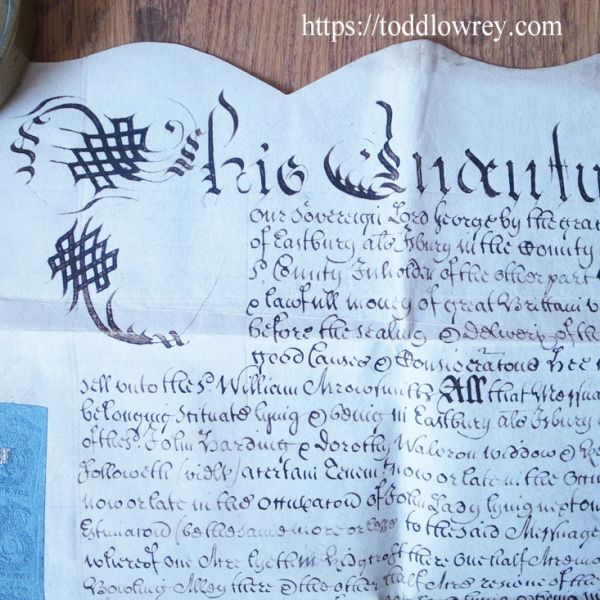 https://toddlowrey.com
This Indentu
Our Sovereign Lord George by the grac
of Eastbury als Isbury in the County
Sd. County Inholder of the other part
& lawfull money of great Brittain
before the sealing & delivery of the
good Causes & Consideratons hee
sell unto the sd. William Arrowsmith All that Messua
belonging Scituate lying & being in Eastbury als Isbury
of the sd. John Harding & Dorothy Waldron widdow &
followeth (vidlt) a certain Tenemt. now or late in the Occu
now or late in the Occupaton of John Lady lying next
Estimaton (be the same more or lesse) to the said Messuage
whereof one Acre lyeth in there one half Acre
Bowling Alley there & the other half Acre residue of the